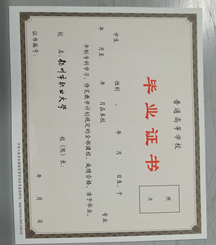 普通高等学校
毕业证书
学生 性别 , 年 月 日生,于
年 月至 年 月在本校 专业
年制专科学习,修完教学计划规定的全部课程,成绩合格,准予毕业。
校 名: 州市职工大学 校(院)长:
证书编号: 年 月 日